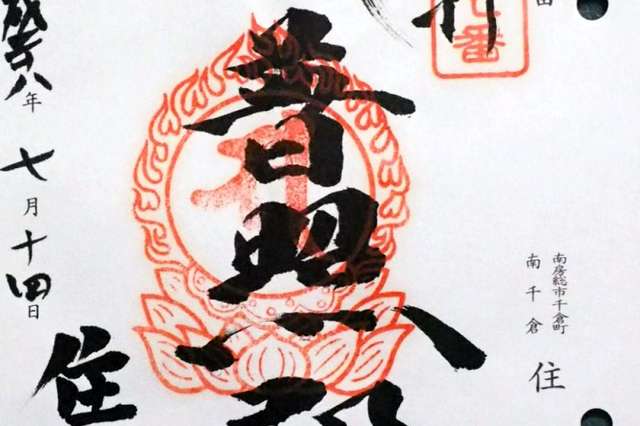 南房総市千倉町
南千倉 住
番
普照
成廿八年七月十四日
住